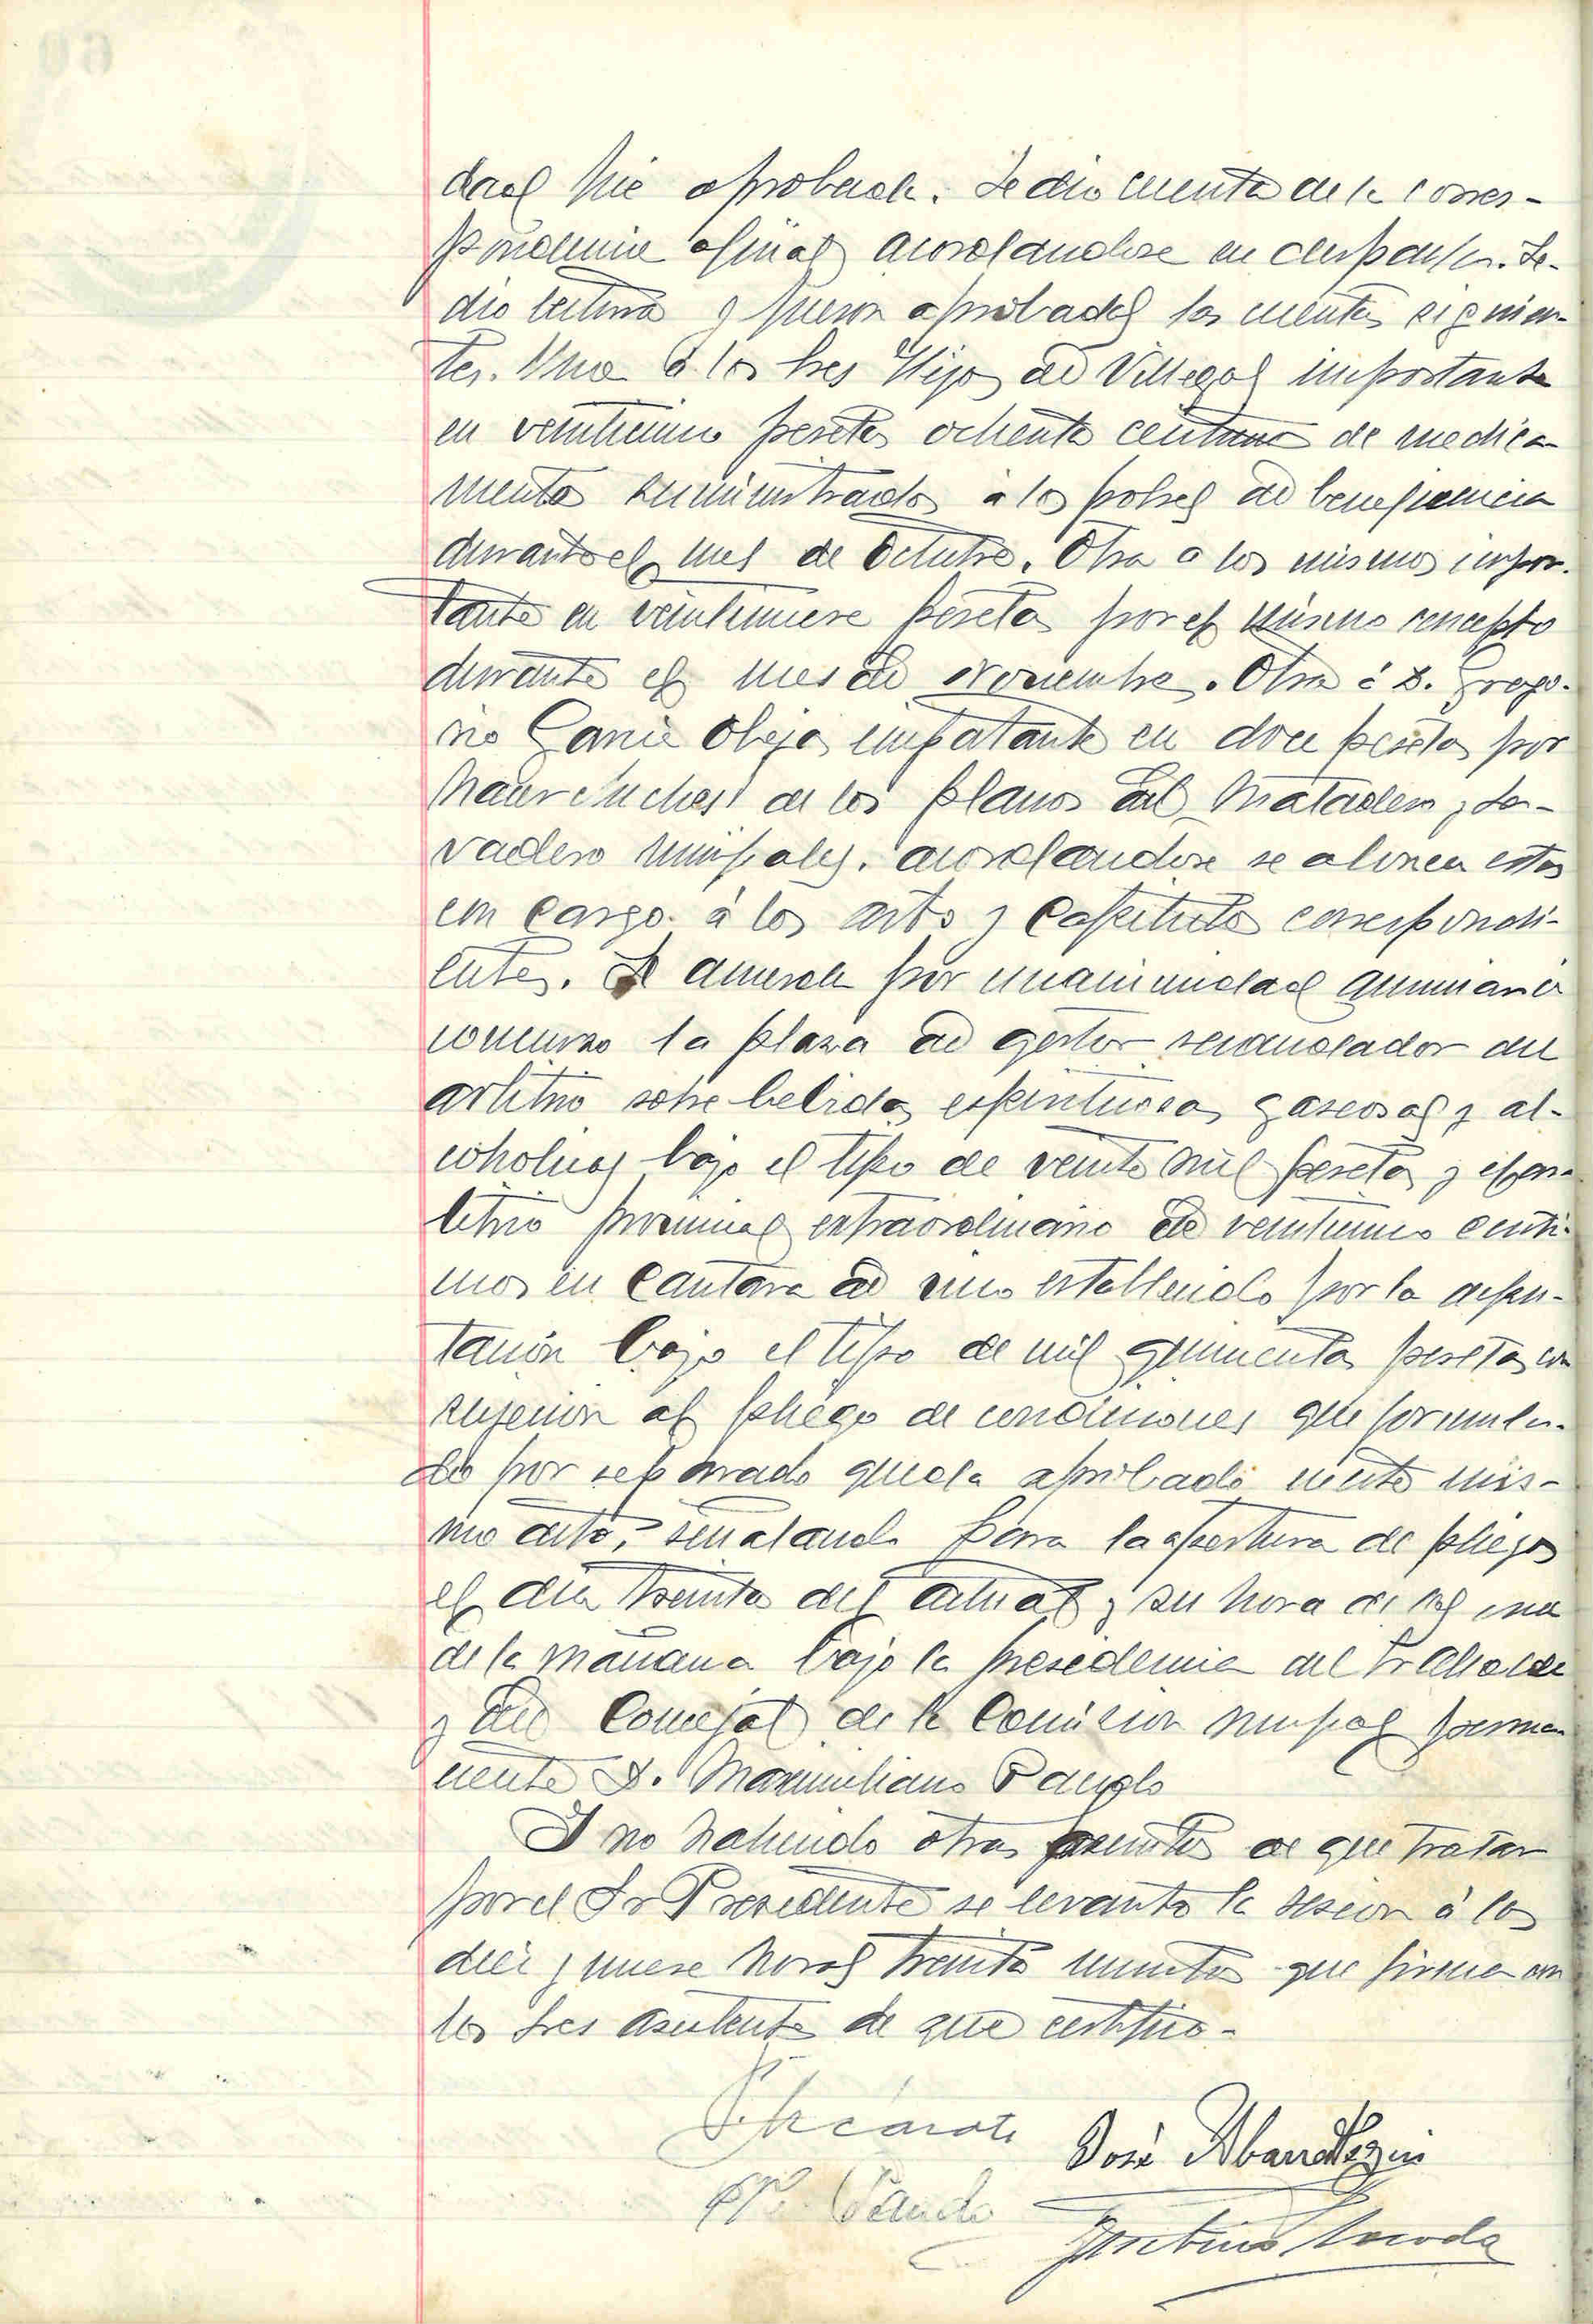 dad fue aprobada. Se dio cuenta de la corres-
pondencia oficial acordandose su despacho. Se
dio lectura y fueron aprobadas las cuentas siguien-
tes. Una á los Sres Hijos de Villegas importante
en veinticinco pesetas ochenta centimos de medica-
mentos suministrados á los pobres de beneficencia
durante el mes de Octubre. Otra a los mismos impor-
tante en veintinueve pesetas por el mismo concepto
durante el mes de Noviembre. Otra á D. Grego-
rio Garcia importante en doce pesetas por
de los planos del Matadero y La-
vadero munipales. acordandose se abonen estas
con cargo á los arts y Capitulos correspondi-
entes. Se acuerda por unanimidad anunciar á
concurso la plaza de gestor recaudador del
arbitrio sobre bebidas espirituosas gaseosas y al-
coholicas bajo el tipo de veinte mil pesetas y el ar-
bitrio provincial extraordinario de veinticinco centi-
mos en Cantara de vino establecido por la dipu-
tación bajo el tipo de mil quinientas pesetas con
sujecion al pliego de condiciones que formula-
do por separado queda aprobado en este mis-
mo acto, señalando para la apertura de pliegos
el dia treinta del actual y su hora de las once
de la mañana bajo la presidencia del Sr Alcalde
y del Concejal de la Comision munipal perma-
nente D. Maximiliano Pando
Y no habiendo otros asuntos de que tratar
por el Sr Presidente se levanto la sesion á las
diez y nueve horas treinta minutos que firma con
los Sres asistentes de que certifico-
José
M. Pando